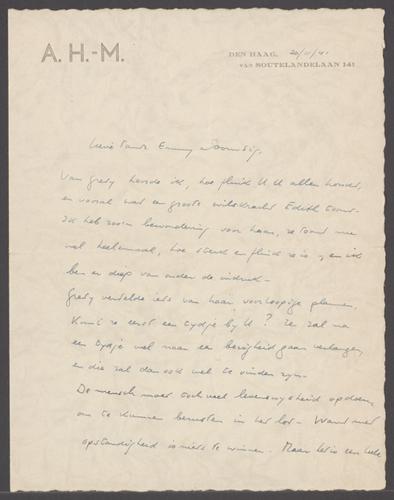 A. H.-M.
DEN HAAG, 20/11/41
VAN SOUTELANDELAAN 141
Lieve Tante Emmy
Van Gredy hoorde ik, hoe flink U U allen houdt,
en vooral wat een groote wilskracht Edith toont.
Ik heb zoo'n bewondering voor haar, ze toont nu
wel heelemaal, hoe sterk en flink ze is, en ik
ben er diep van onder de indruk.
Gredy vertelde iets van haar voorloopige plannen,
Komt ze eerst een tydje by U? Ze zal na
een tydje wel naar een bezigheid gaan verlangen,
en die zal dan ook wel te vinden zyn.
De mensch moet toch veel levenswysheid opdoen,
om te kunnen berusten in het lot. Want met
opstandigheid is niets te winnen. Maar het is een heele